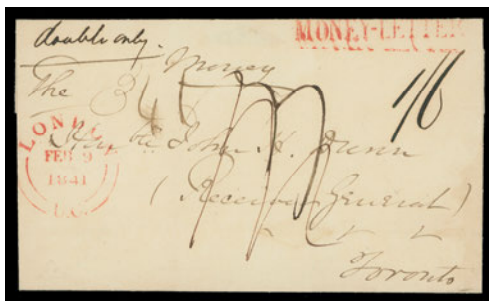 double only.
MONEY-LETTER
Money
The
1/6
LONDON
FEB 9
1841
U.C.
Honble John H. Dunn
(Receiver General)
Toronto